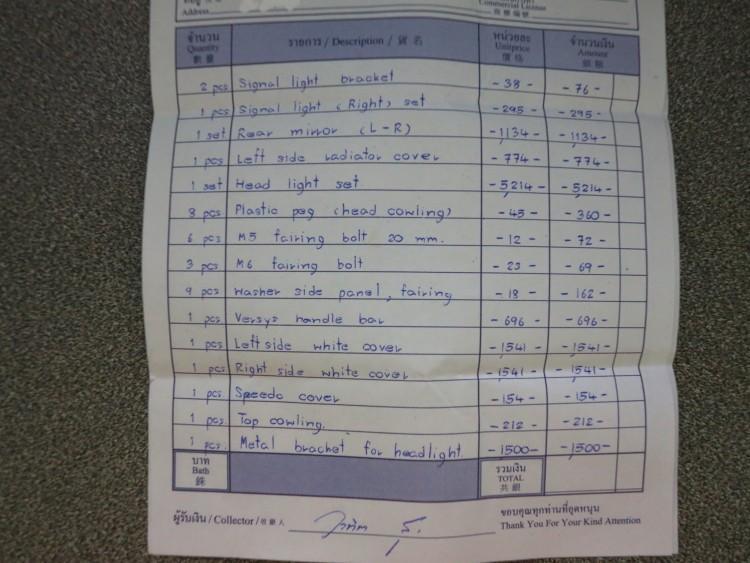 Address
Commercial License
จำนวน รายการ / Description / 貨名 หน่วยละ จำนวนเงิน
Quantity Unitprice Amount
數量 價格 銀額
2 pcs Signal light bracket - 38 - - 76 -
1 pcs Signal light (Right) set - 295 - - 295 -
1 set Rear mirror (L-R) - 1,134 - - 1,134 -
1 pcs Left side radiator cover - 774 - - 774 -
1 set Head light set - 5,214 - - 5,214 -
8 pcs Plastic peg (head cowling) - 45 - - 360 -
6 pcs M5 fairing bolt 20 mm. - 12 - - 72 -
3 pcs M6 fairing bolt - 23 - - 69 -
9 pcs Washer side panel, fairing - 18 - - 162 -
1 pcs Versys handle bar - 696 - - 696 -
1 pcs Left side white cover - 1,541 - - 1,541 -
1 pcs Right side white cover - 1,541 - - 1,541 -
1 pcs Speedo cover - 154 - - 154 -
1 pcs Top cowling. - 212 - - 212 -
1 pcs. Metal bracket for headlight - 1,500 - - 1,500 -
บาท รวมเงิน
Bath TOTAL
銖 共銀
ผู้รับเงิน / Collector / 收銀人 ขอบคุณทุกท่านที่อุดหนุน
Thank You For Your Kind Attention